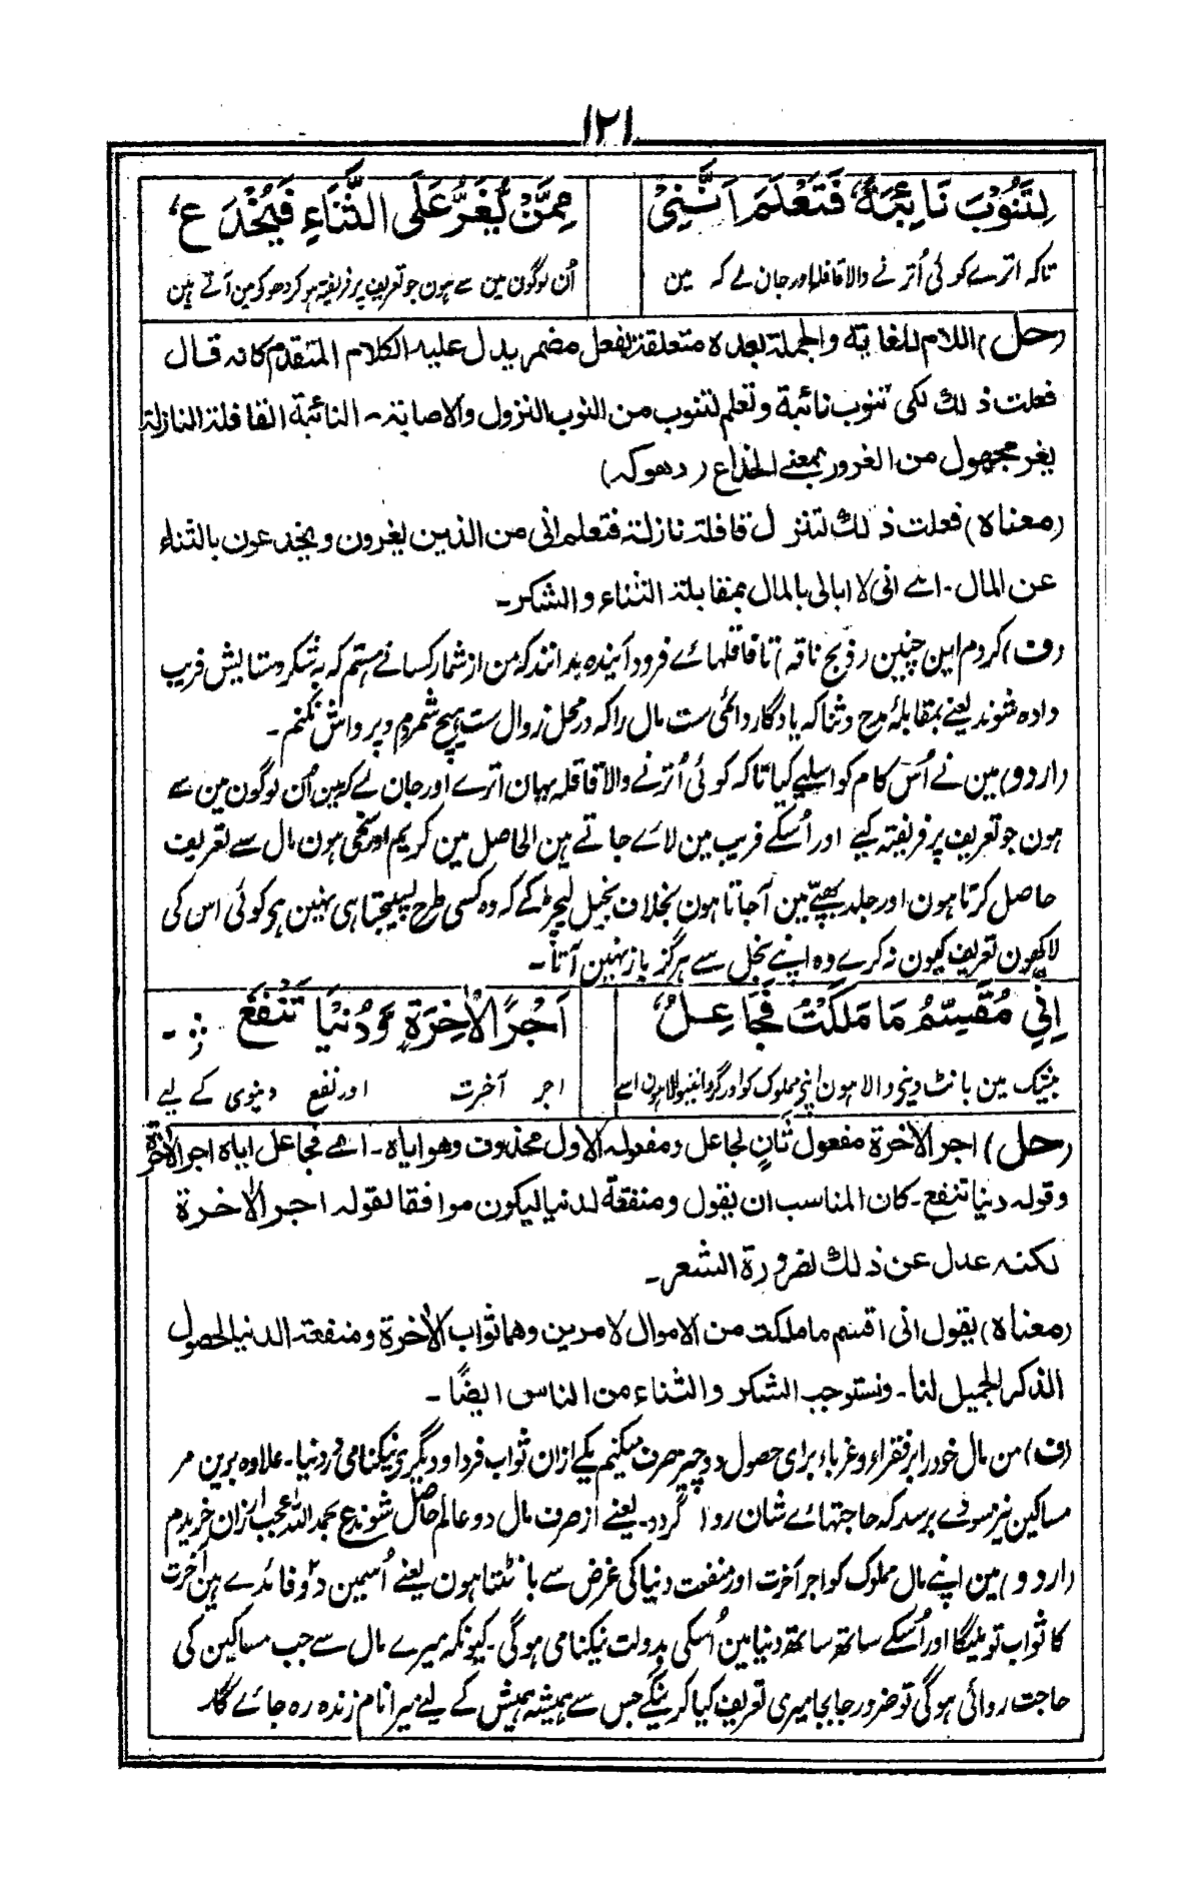 ۱۲۱
لِتَنُوْبَ نَائِبَةٌ فَتَعْلَمَ اَنَّنِیْ
مِمَّنْ یُّغَرُّ عَلَی الثَّنَاءِ فَیُخْدَعُ
تاکہ اترے کوئی اُترنے والا قافلہ اور جان لے کہ مین
اُن لوگون مین سے ہون جو تعریف پر فریفتہ ہو کر دھوکہ مین آتے ہین
(حل) اللام للغایۃ والجملۃ بعدہ متعلقۃ بفعل مضمر یدل علیہ الکلام المتقدم کانہ قال
فعلت ذلک لکی تنوب نائبۃ وتعلم لتنوب من النوب النزول والاصابۃ۔ النائبۃ القافلۃ النازلۃ
یغر مجھول من الغرور بمعنے الخداع (دھوکہ)
(معناہ) فعلت ذلک لتنزل قافلۃ نازلۃ فتعلم انی من الذین یغرون ویخدعون بالثناء
عن المال۔ اے انی لا ابالی بالمال بمقابلۃ الثناء والشکر۔
(ف) کردم این چنین (ذبح ناقہ) تا قافلہائے فرود آیندہ بدانند کہ من از شمار کسانے ہستم کہ بشکر و ستایش فریب
دادہ شوند یعنے بمقابلۂ مدح و ثنا کہ یادگار دائمی ست مال را کہ در محل زوال ست ہیچ شمرم و پرواش نکنم۔
(اردو) مین نے اُس کام کو اسلیے کیا تاکہ کوئی اُترنے والا قافلہ یہان اترے اور جان لے کہ مین اُن لوگون مین سے
ہون جو تعریف پر فریفتہ کیے اور اُسکے فریب مین لائے جاتے ہین الحاصل مین کریم اور سخی ہون مال سے تعریف
حاصل کرتا ہون اور جلد بھپّے مین آ جاتا ہون بخلاف بخیل لیچڑ کے کہ وہ کسی طرح پسیجتا ہی نہین ہو کوئی اس کی
لاکھون تعریف کیون نہ کرے وہ اپنے بخل سے ہرگز باز نہین آتا۔
اِنِّیْ مُقَسِّمُ مَا مَلَکْتُ فَجَاعِلٌ
اَجْرًا لِاٰخِرَۃٍ وَّدُنْیَا تَنْفَعُ
بیشک مین بانٹ دینے والا ہون اپنی مملوک کو اور گرداننے والا ہون اسے
اجر آخرت اور نفع دنیوی کے لیے
(حل) اجر الاٰخرۃ مفعول ثانٍ لجاعل ومفعولہ الاول محذوف وھو ایاہ۔ اے فجاعل ایاہ اجر الاٰخرۃ
وقولہ دنیا تنفع۔ کان المناسب ان یقول ومنفعۃ لدنیا لیکون موافقا لقولہ اجر الاٰخرۃ
لکنہ عدل عن ذلک لضرورۃ الشعر۔
(معناہ) یقول انی اقسم ما ملکت من الاموال لامرین وھما ثواب الاٰخرۃ ومنفعۃ الدنیا لحصول
الذکر الجمیل لنا۔ ونستوجب الشکر والثناء من الناس ایضًا۔
(ف) من مال خود را بر فقراء و غرباء برای حصول دو چیز صرف میکنم یکے ازان ثواب فردا و دیگری نیکنامی در دنیا۔ علاوہ برین مر
مساکین نیز سودے برسد کہ حاجتہائے شان روا گردد۔ یعنے از صرف مال دو عالم حاصل شوند ع بحمد اللہ عجب ارزان خریدم
(اردو) مین اپنے مال مملوک کو اجر آخرت اور منفعت دنیا کی غرض سے بانٹتا ہون یعنے اُسمین دو فائدے ہین آخرت
کا ثواب تو ملیگا اور اُسکے ساتھ ساتھ دنیا مین اُسکی بدولت نیکنامی ہوگی۔ کیونکہ میرے مال سے جب مساکین کی
حاجت روائی ہوگی تو ضرور جابجا میری تعریف کیا کرینگے جس سے ہمیشہ ہمیش کے لیے میرا نام زندہ رہ جائے گا۔